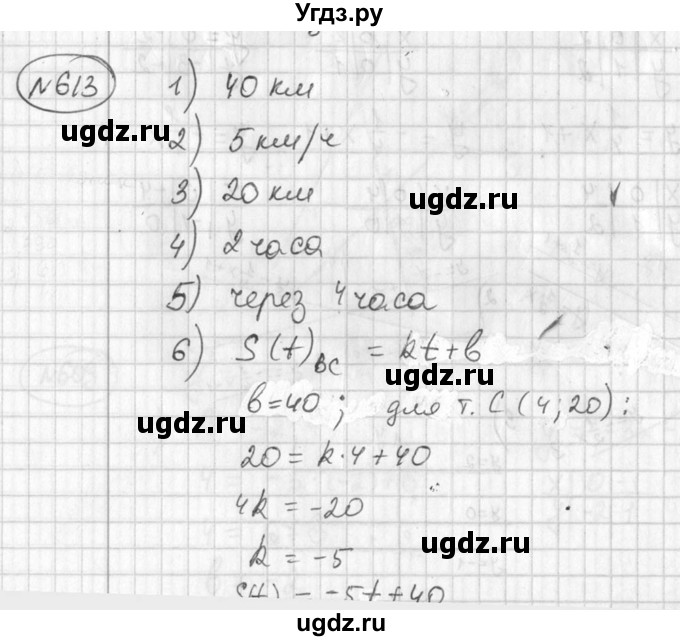 Угдз.ру
№613
1) 40 км
ugdz.ru
2) 5 км/ч
3) 20 км
ugdz.ru
4) 2 часа
5) через 4 часа
6) S(t)BC = kt+b
b=40; для т. C (4;20):
ugdz.ru
20 = k·4+40
4k = -20
k = -5
ugdz.ru
S(t) = -5t+40
ugdz.ru